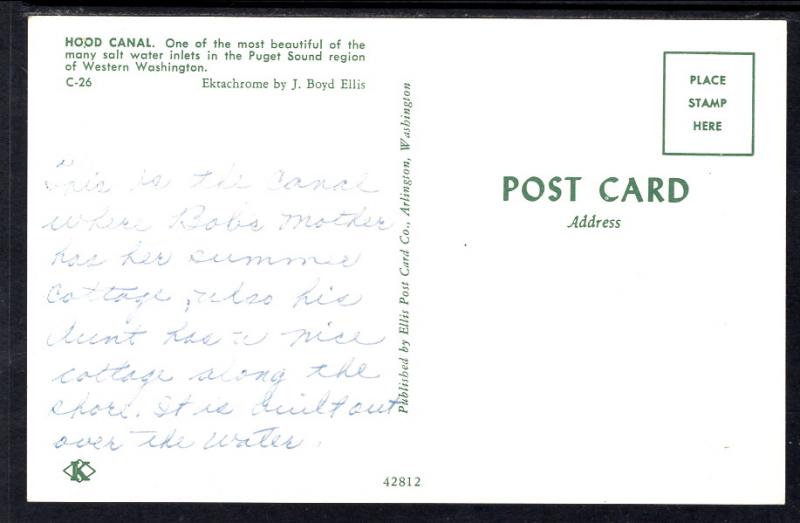 HOOD CANAL. One of the most beautiful of the
many salt water inlets in the Puget Sound region
of Western Washington.
C-26 Ektachrome by J. Boyd Ellis
This is the Canal
where Bobs mother
has her summer
cottage, also his
Aunt has a nice
cottage along the
shore. It is built out
over the water.
K
Published by Ellis Post Card Co., Arlington, Washington
42812
PLACE
STAMP
HERE
POST CARD
Address